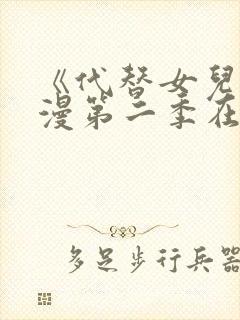 《代替女兒
漫第二季在
多足步行兵器